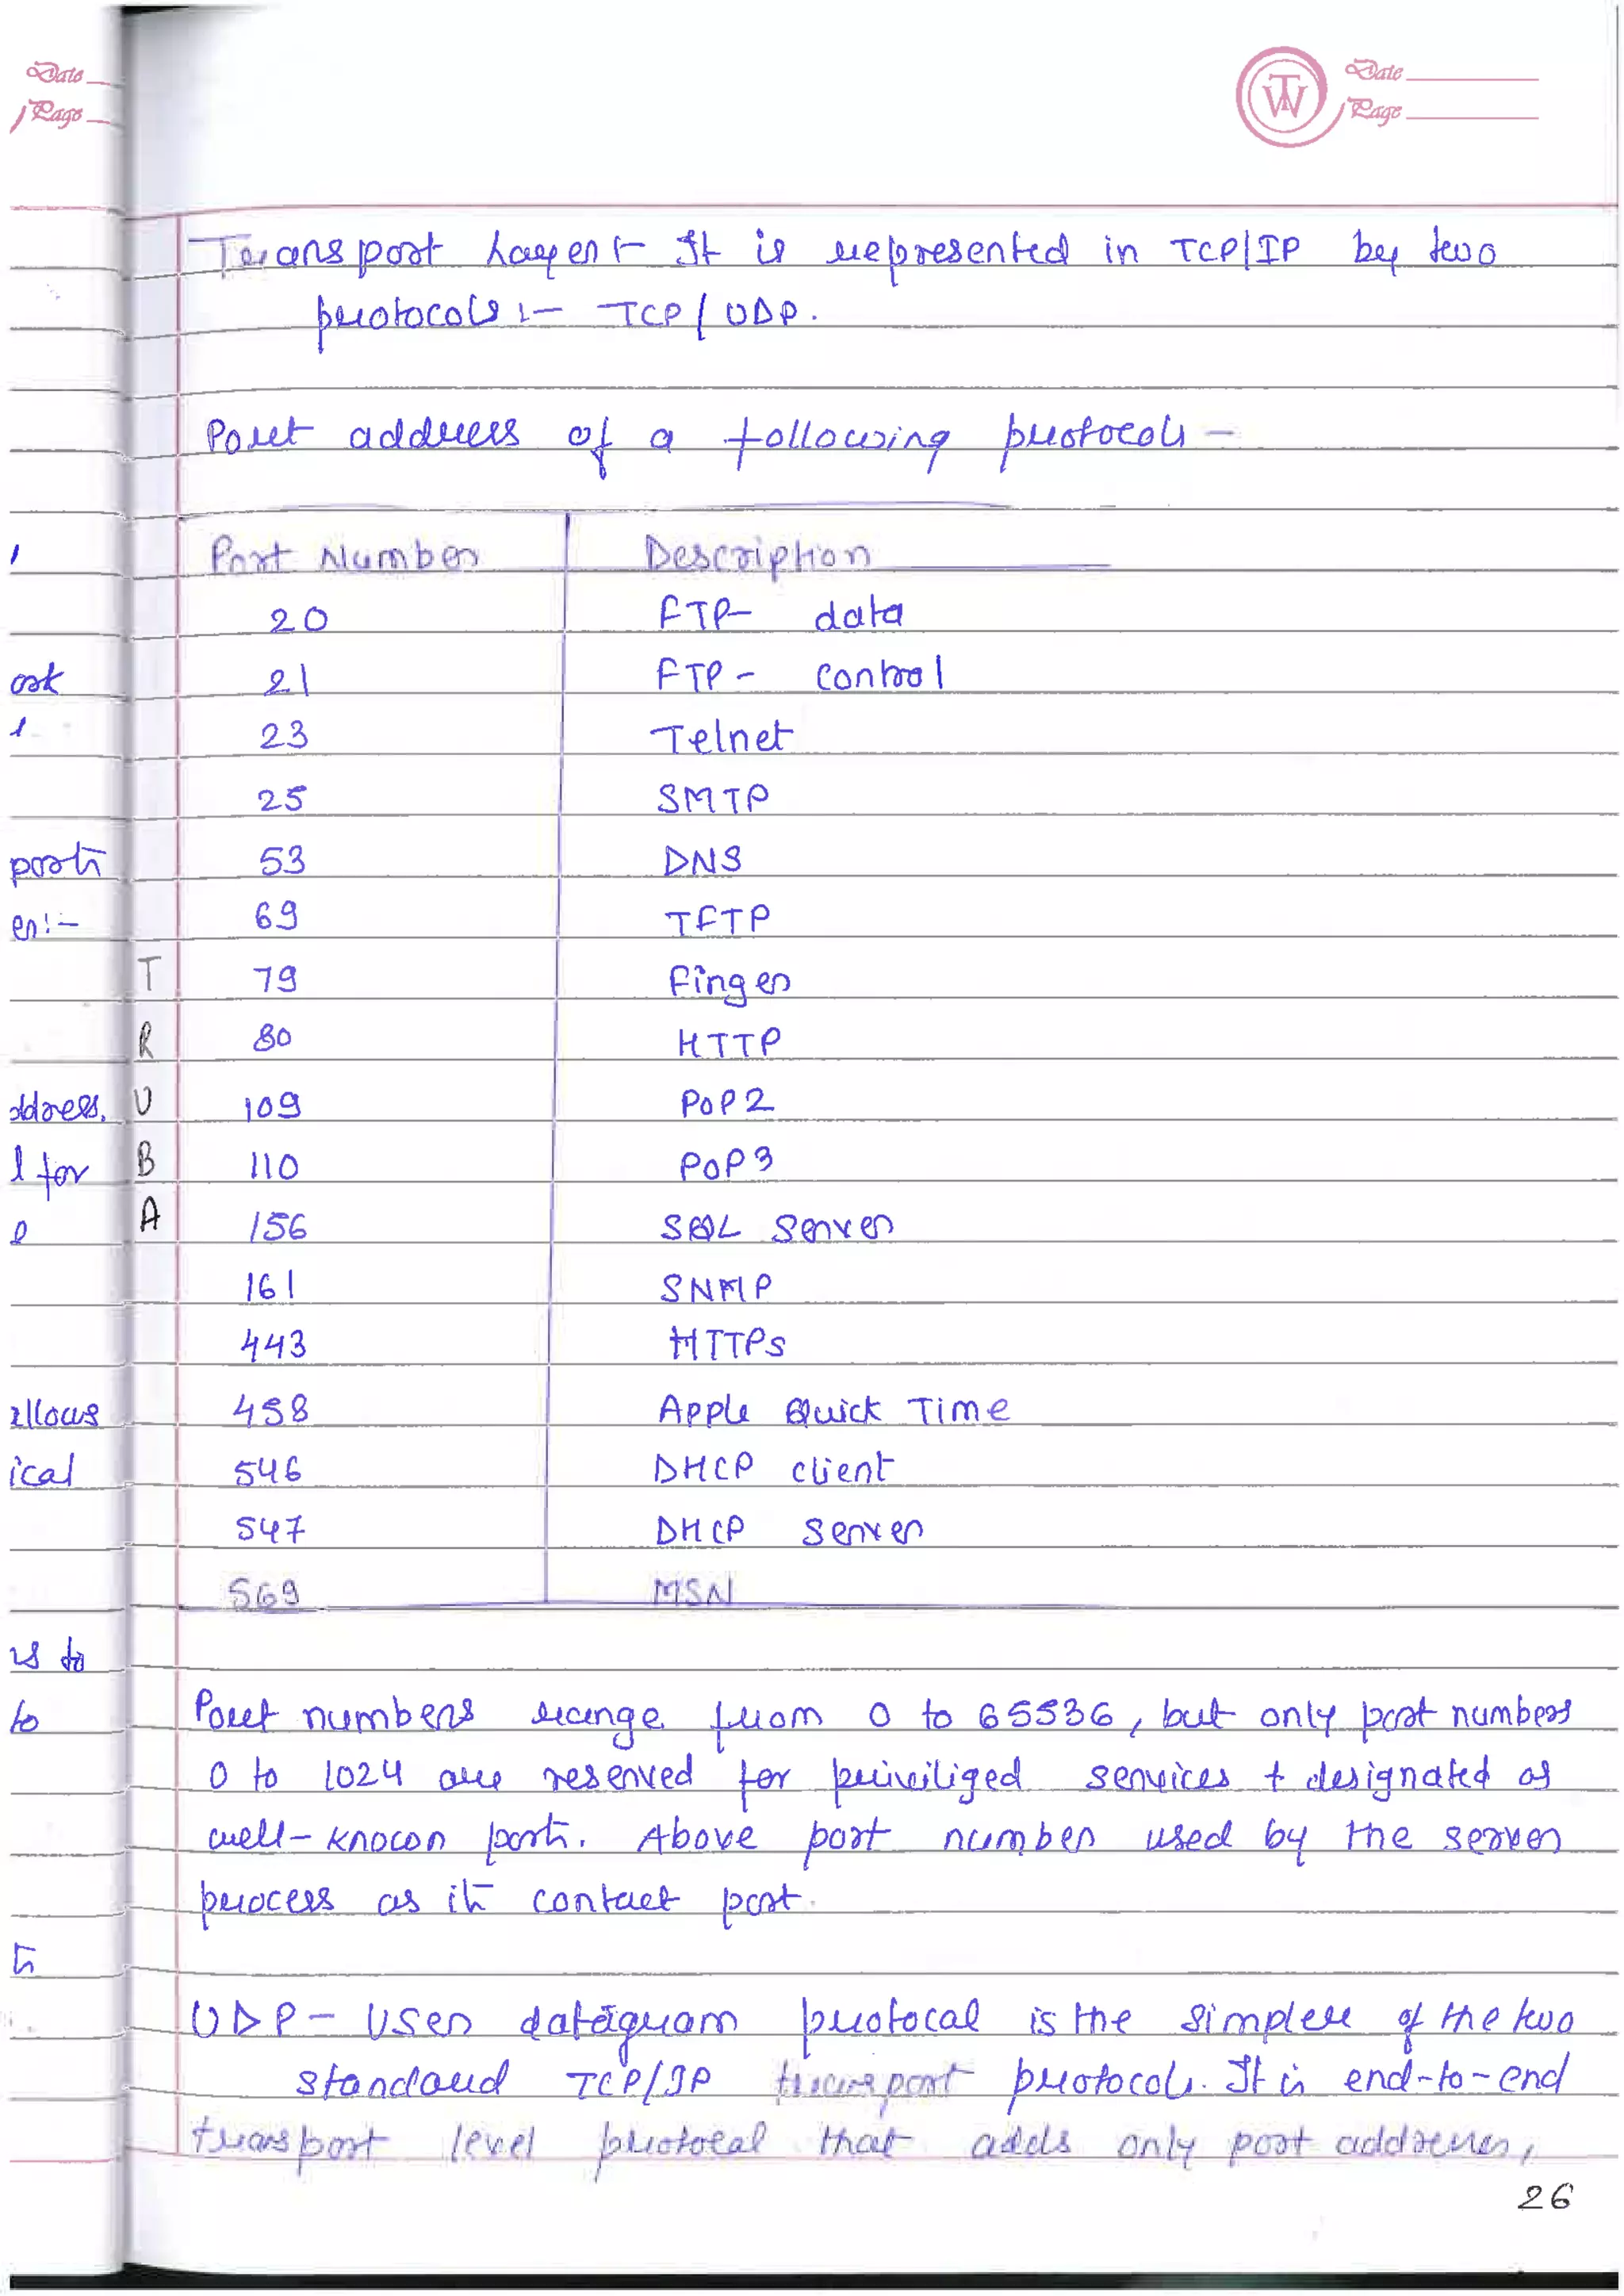 Date
Page
Date
Page
Transport Layer :- It is represented in TCP/IP by two
protocols :- TCP / UDP.
Port address of a following protocols -
Port Number Description
20 FTP- data
21 FTP - Control
23 Telnet
25 SMTP
53 DNS
69 TFTP
79 Finger
80 HTTP
109 PoP2
110 PoP3
156 SQL Server
161 SNMP
443 HTTPs
458 Apple Quick Time
546 DHCP client
547 DHCP Server
569 MSN
Port numbers range from 0 to 65536, but only port numbers
0 to 1024 are reserved for priviliged services + designated as
well-known ports. Above port number used by the server
process as its contact port.
UDP - User datagram protocal is the simpler of the two
standard TCP/IP transport protocols. It is end-to-end
transport level protocal that adds only port addresses,
26
ports
er:-
address.
l for
allows
ical
is to
to
T
R
U
B
A